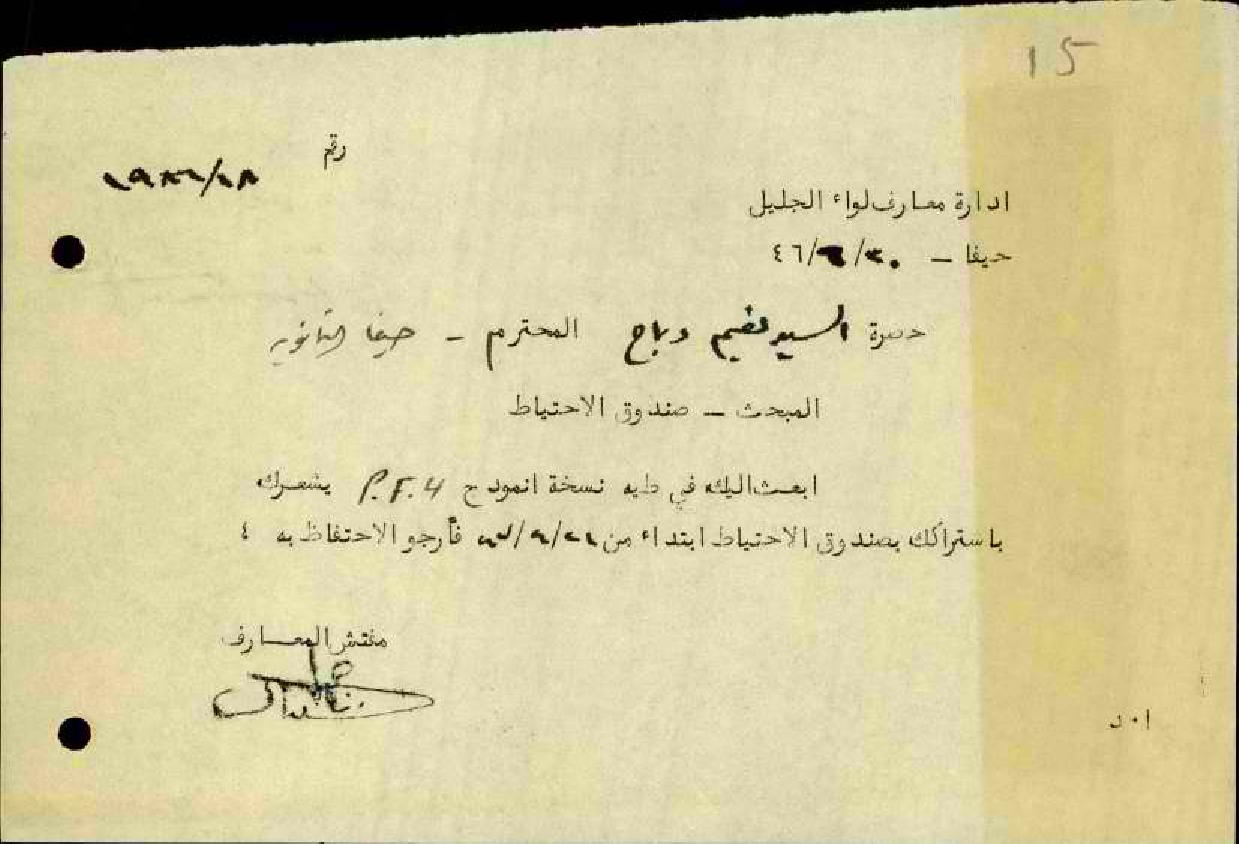 15
رقم
ادارة معارف لواء الجليل
حيفا - ٣٠/٦/٤٦
حضرة السيد نعيم دباح المحترم - حيفا الثانوية
المبحث - صندوق الاحتياط
ابعث اليك في طيه نسخة انموذج P.F.4 يشعرك
باشتراكك بصندوق الاحتياط ابتداء من فأرجو الاحتفاظ به ٤
مفتش المعارف
ا٠د